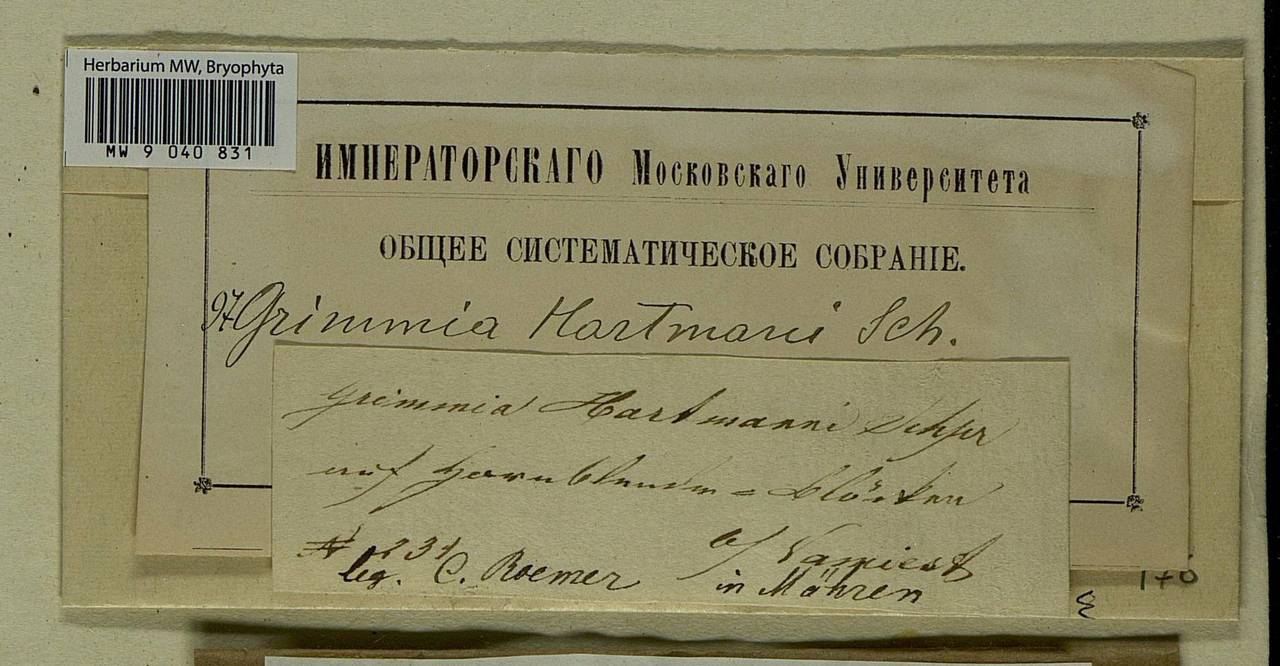 Herbarium MW, Bryophyta
MW 9 040 831
ИМПЕРАТОРСКАГО Московскаго Университета
ОБЩЕЕ СИСТЕМАТИЧЕСКОЕ СОБРАНІЕ.
97 Grimmia Hartmani Sch.
Grimmia Hartmanni Schpr
auf Hornblenden=blöcken
N 231 b/ Namiest
leg. C. Roemer in Mähren